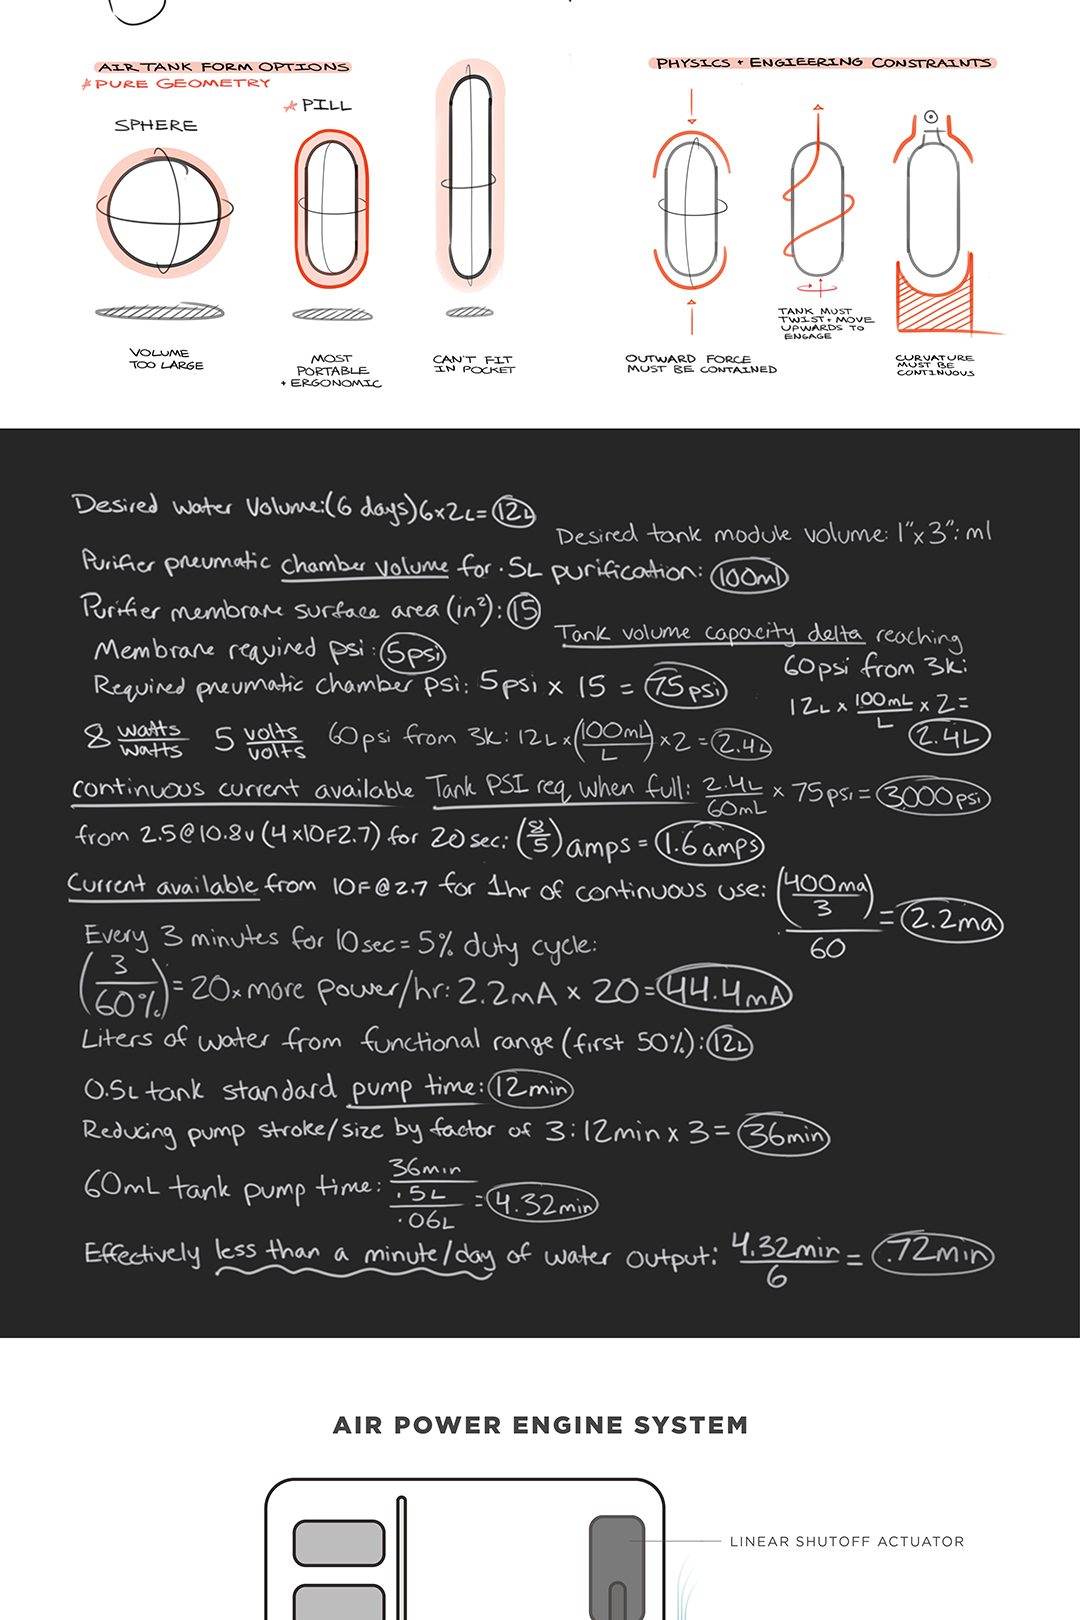 AIR TANK FORM OPTIONS
* PURE GEOMETRY
SPHERE
* PILL
VOLUME
TOO LARGE
MOST
PORTABLE
+ ERGONOMIC
CAN'T FIT
IN POCKET
PHYSICS + ENGIEERING CONSTRAINTS
OUTWARD FORCE
MUST BE CONTAINED
TANK MUST
TWIST + MOVE
UPWARDS TO
ENGAGE
CURVATURE
MUST BE
CONTINUOUS
Desired water Volume:(6 days) 6x2L= 12L
Desired tank module volume: 1"x3": ml
Purifier pneumatic chamber volume for .5L purification: 100ml
Purifier membrane surface area (in²): 15
Membrane required psi: 5psi
Required pneumatic chamber psi: 5psi x 15 = 75psi
Tank volume capacity delta reaching
60psi from 3k:
12L x 100mL/L x 2 =
2.4L
8 watts/watts 5 volts/volts 60psi from 3k: 12L x (100mL/L) x 2 = 2.4L
continuous current available Tank PSI req when full: 2.4L/60mL x 75psi = 3000psi
from 2.5@10.8v (4x10F2.7) for 20sec: (8/5) amps = 1.6 amps
Current available from 10F@2.7 for 1hr of continuous use: (400ma/3)/60 = 2.2ma
Every 3 minutes for 10sec = 5% duty cycle:
(3/60%) = 20x more power/hr: 2.2mA x 20 = 44.4mA
Liters of water from functional range (first 50%): 12L
0.5L tank standard pump time: 12min
Reducing pump stroke/size by factor of 3: 12min x 3 = 36min
60mL tank pump time: 36min/(.5L/.06L) = 4.32min
Effectively less than a minute/day of water output: 4.32min/6 = .72min
AIR POWER ENGINE SYSTEM
LINEAR SHUTOFF ACTUATOR